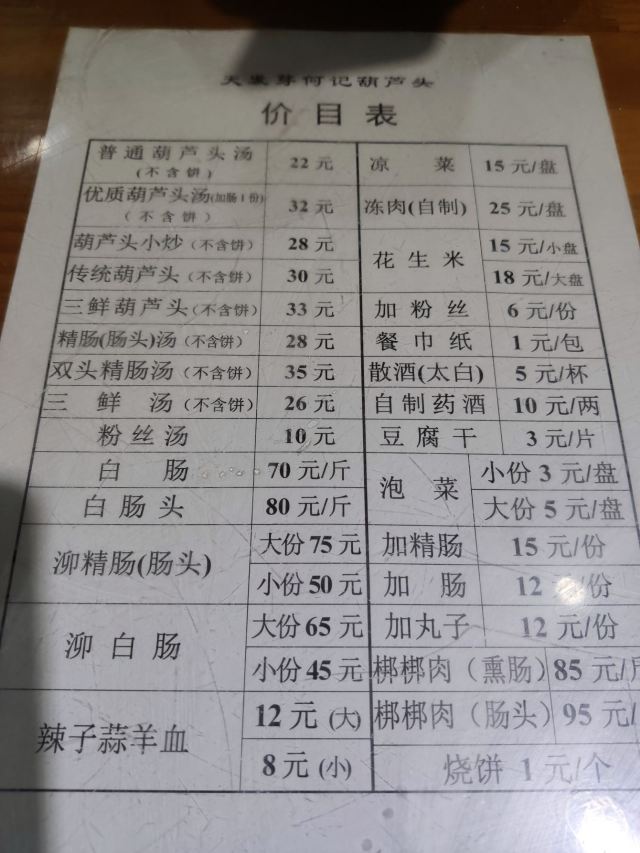 天发芽何记葫芦头
价目表
普通葫芦头汤(不含饼) 22元
优质葫芦头汤(加肠1份)(不含饼) 32元
葫芦头小炒(不含饼) 28元
传统葫芦头(不含饼) 30元
三鲜葫芦头(不含饼) 33元
精肠(肠头)汤(不含饼) 28元
双头精肠汤(不含饼) 35元
三鲜汤(不含饼) 26元
粉丝汤 10元
白肠 70元/斤
白肠头 80元/斤
泖精肠(肠头) 大份75元
小份50元
泖白肠 大份65元
小份45元
辣子蒜羊血 12元(大)
8元(小)
凉菜 15元/盘
冻肉(自制) 25元/盘
花生米 15元/小盘
18元/大盘
加粉丝 6元/份
餐巾纸 1元/包
散酒(太白) 5元/杯
自制药酒 10元/两
豆腐干 3元/片
泡菜 小份3元/盘
大份5元/盘
加精肠 15元/份
加肠 12元/份
加丸子 12元/份
梆梆肉（熏肠）85元/斤
梆梆肉（肠头）95元/
烧饼 1元/个